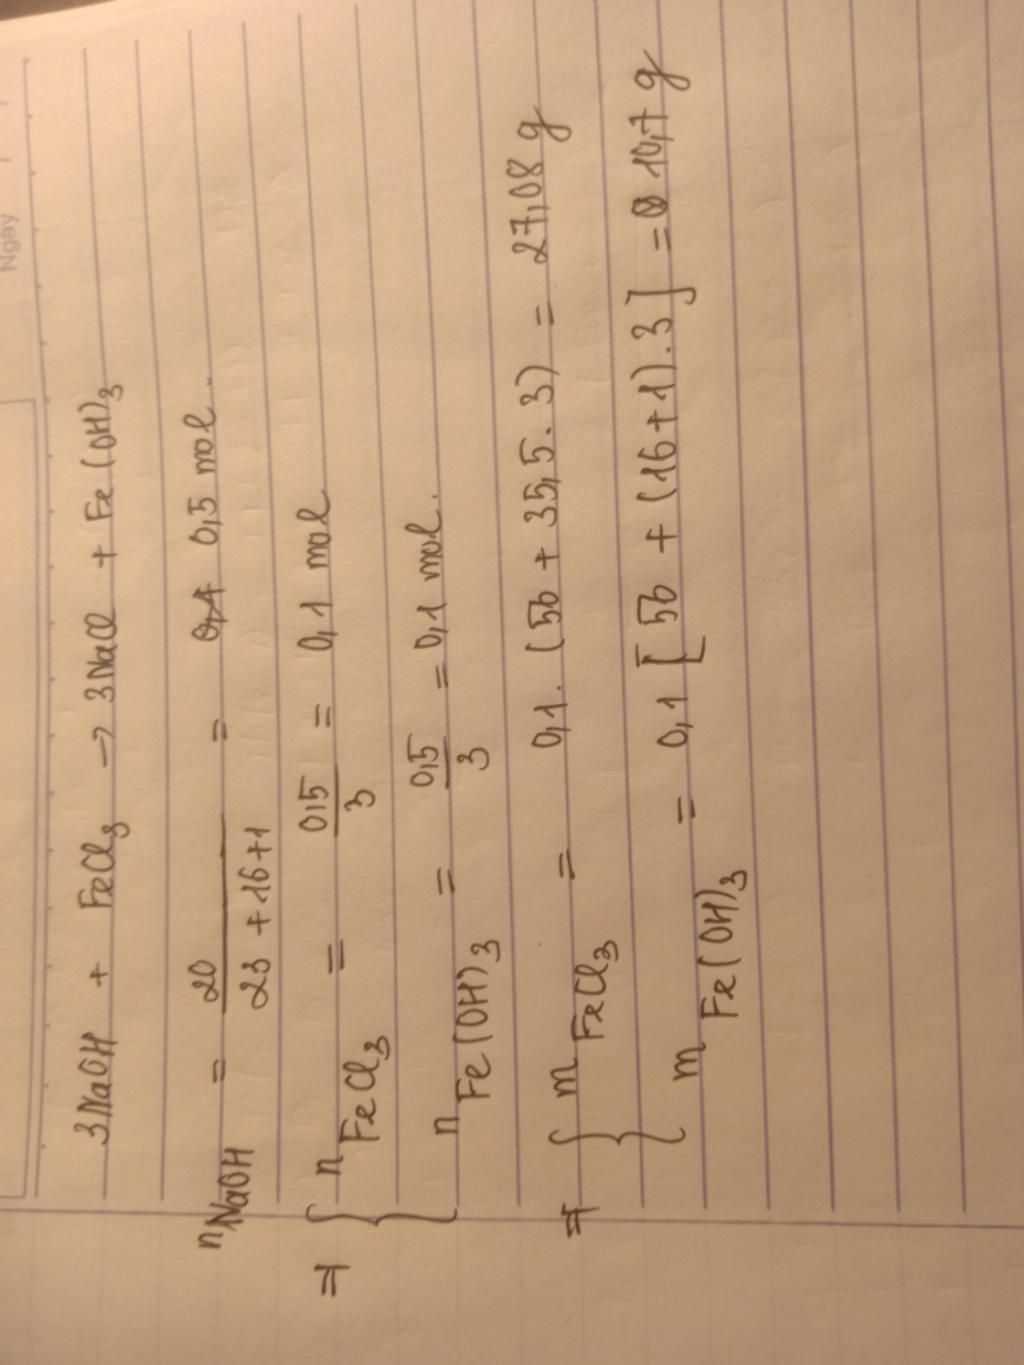 Ngày
3NaOH + FeCl3 → 3NaCl + Fe(OH)3
nNaOH = 20 / (23 + 16 + 1) = 0,5 mol.
⇒ { nFeCl3 = 0,5 / 3 = 0,1 mol
nFe(OH)3 = 0,5 / 3 = 0,1 mol.
⇒ { mFeCl3 = 0,1 . (56 + 35,5 . 3) = 27,08 g
mFe(OH)3 = 0,1 [56 + (16 + 1) . 3] = 10,7 g